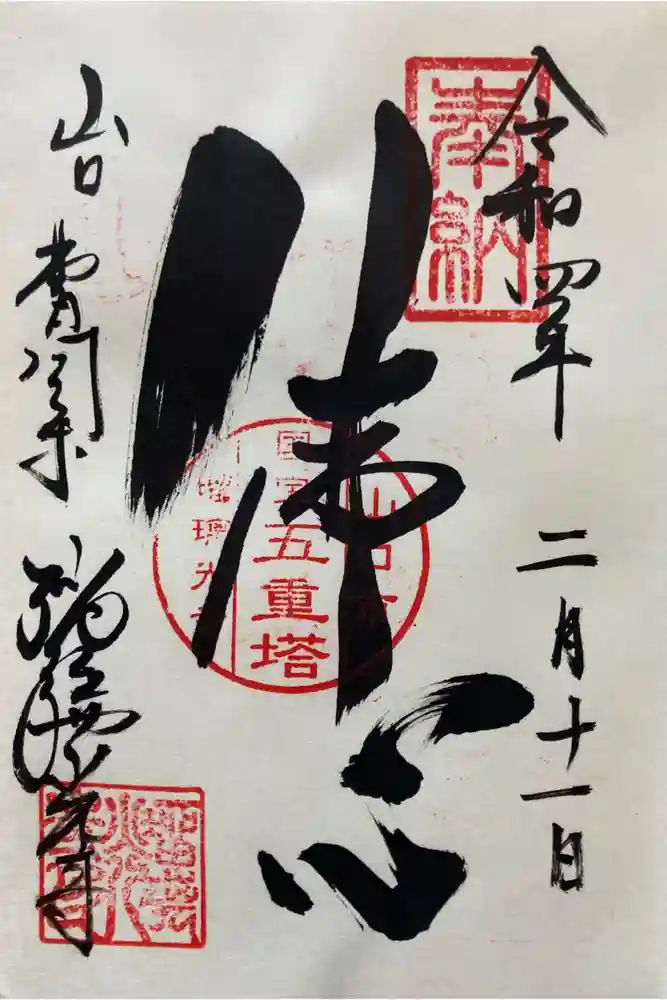 奉納
令和四年 二月十一日
佛心
山口市
國宝
五重塔
瑠璃光寺
山口
瑠璃光寺